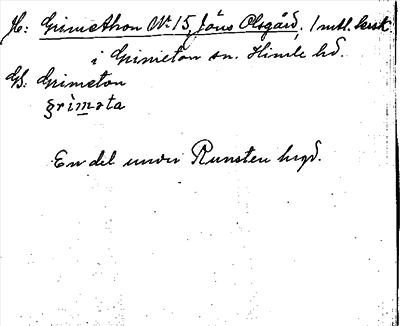 H: Grimethon Nr 15, Jöns Olsgård, 1 mtl. krsk
i Grimeton sn. Himle hd.
Gs: Grimeton
gri̱mǝta
En del under Runsten hrgd.